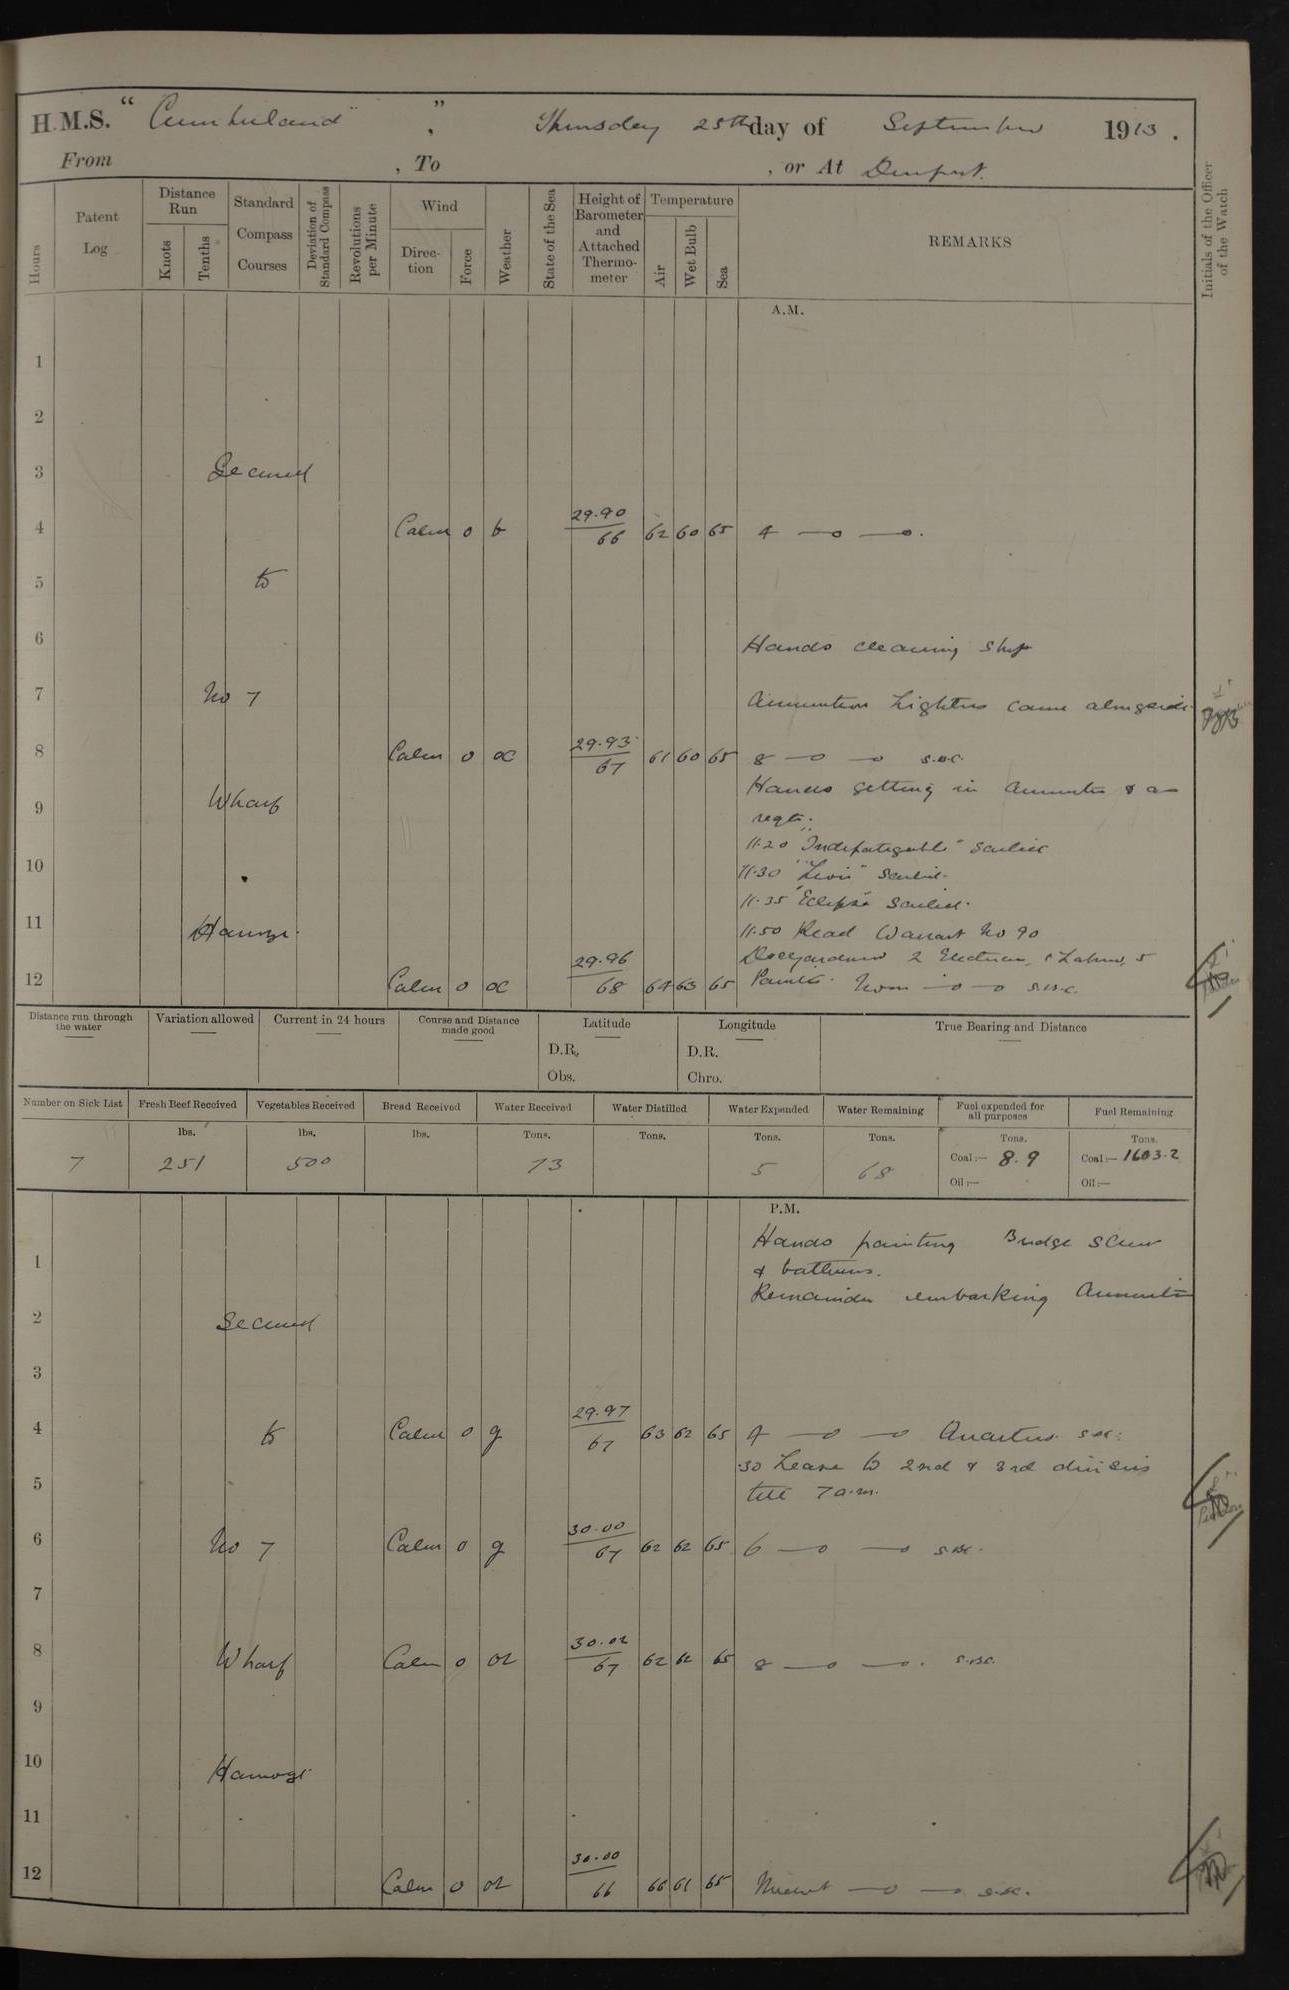 H.M.S. "Cumberland", Thursday 25th day of September 1913.
From , To , or At Devonport.
Hours
Patent Log
Distance Run
Knots
Tenths
Standard Compass Courses
Deviation of Standard Compass
Revolutions per Minute
Wind
Direction
Force
Weather
State of the Sea
Height of Barometer and Attached Thermometer
Temperature
Air
Wet Bulb
Sea
REMARKS
Initials of the Officer of the Watch
A.M.
1
2
3 Secured
4 Calm 0 b 29.90 66 62 60 65 4
5 to
6 Hands cleaning ship
7 No 7 Ammunition Lighters came alongside.
8 Calm 0 oc 29.93 67 61 60 65 8 s.b.c.
9 Wharf Hands getting in ammunition & as
reqte.
11.20 "Indefatigable" sailed
10 11.30 "Lion" sailed.
11.35 "Eclipse" sailed.
11 Hamoze. 11.50 Read Warrant No 90
Dockyardmen 2 Electricians, 1 Labourer, 5
12 Calm 0 oc 29.96 68 64 63 65 Painters. Noon s.b.c.
Distance run through the water
Variation allowed
Current in 24 hours
Course and Distance made good
Latitude
D.R.
Obs.
Longitude
D.R.
Chro.
True Bearing and Distance
Number on Sick List
Fresh Beef Received
Vegetables Received
Bread Received
Water Received
Water Distilled
Water Expended
Water Remaining
Fuel expended for all purposes
Fuel Remaining
lbs. lbs. lbs. Tons. Tons. Tons. Tons. Tons. Tons.
7 251 500 73 5 68 Coal:— 8.9 Coal:— 1603.2
Oil:— Oil:—
P.M.
Hands painting Bridge screen
1 & battens.
Remainder embarking Ammunition
2 Secured
3
4 to Calm 0 g 29.97 67 63 62 65 4 Quarters s.b.c.
.30 Leave to 2nd & 3rd divisions
5 till 7 a.m.
6 No 7 Calm 0 g 30.00 67 62 62 65 6 s.b.c.
7
8 Wharf Calm 0 or 30.02 67 62 65 8 s.b.c.
9
10 Hamoze
11
12 Calm 0 or 30.00 66 66 61 65 Midnt s.b.c.